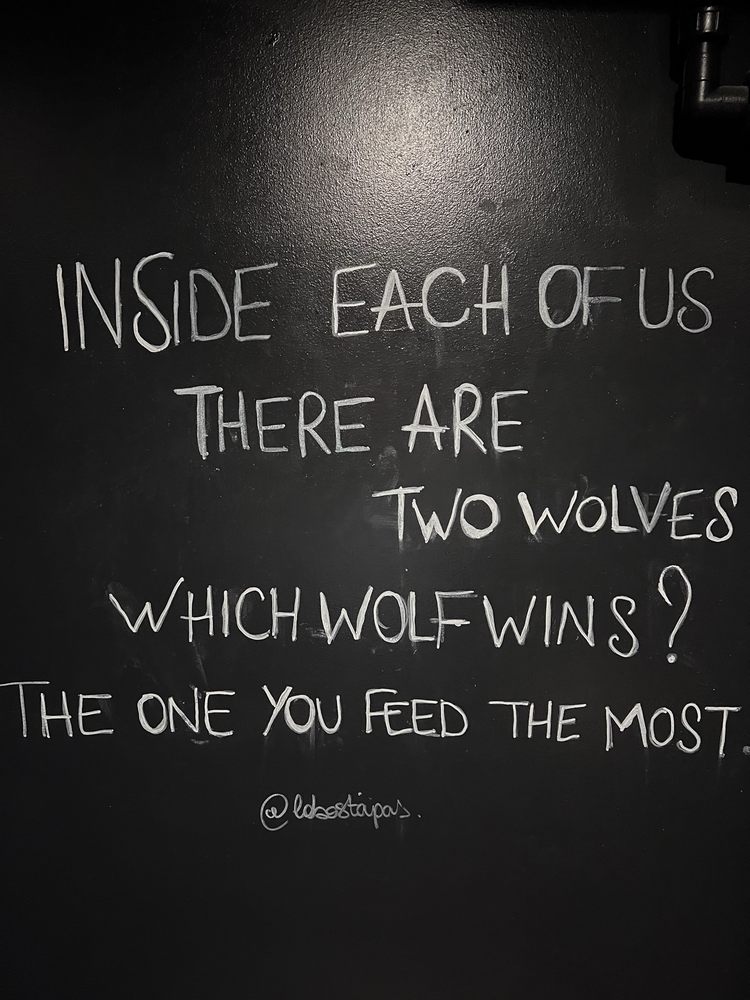 INSIDE EACH OF US
THERE ARE
TWO WOLVES
WHICH WOLF WINS?
THE ONE YOU FEED THE MOST.
@lobostapas.